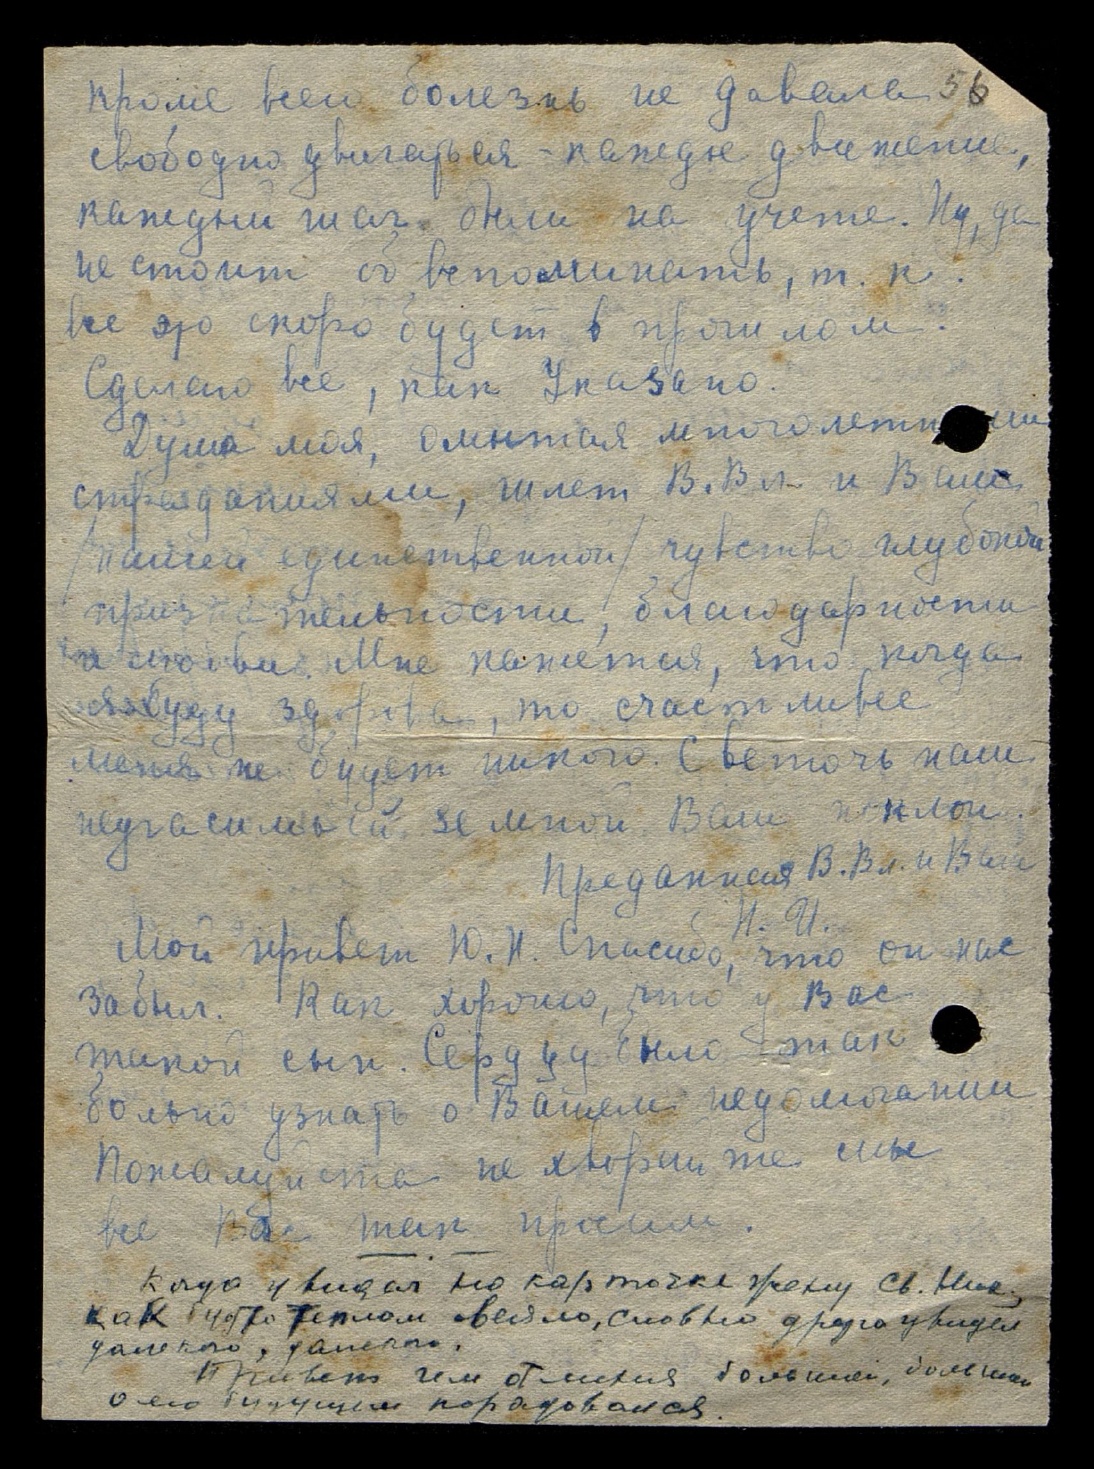 56
кроме всего болезнь не давала
свободно двигаться - каждое движение,
каждый шаг были на учете. Ну, да
не стоит об вспоминать, т. к.
все это скоро будет в прошлом.
Сделаю все, как Указано.
Душа моя, омытая многолетними
страданиями, шлет В.Вл. и Вам
/нашей единственной/ чувство глубокой
признательности, благодарности
и любви. Мне кажется, что когда
я буду здорова, то счастливее
меня не будет никого. Светочь наш
неугасимый земной Вам поклон.
Преданная В.Вл. и Вам
Н. И.
Мой привет Ю.Н. Спасибо, что он нас
забыл. Как хорошо, что у Вас
такой сын. Сердцу было так
больно узнать о Вашем недомогании
Пожалуйста не хворайте мы
все Вас так просим.
Когда увидал на карточке жену Св. Ник.
как будто теплом овеяло, словно друга увидел
далекого, далекого.
Привет чем от меня большой, большой
о его будущем порадовался.